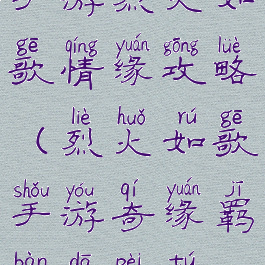 gē qíng yuán gōng lüè
歌情缘攻略
liè huǒ rú gē
（烈火如歌
shǒu yóu qí yuán jī
手游奇缘羁
bàn dā pèi tú